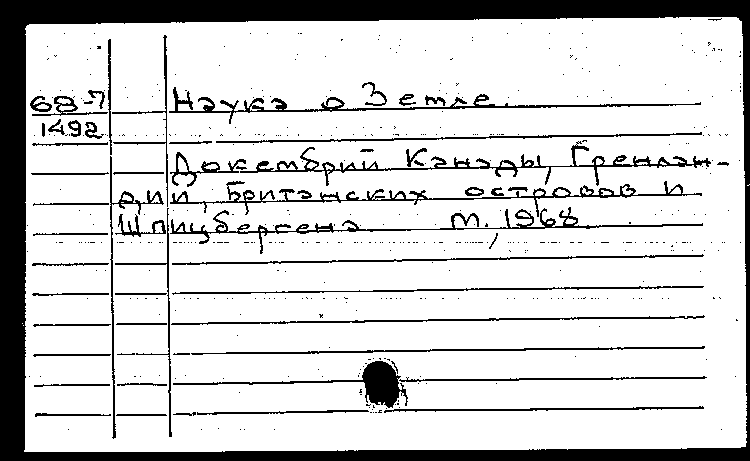 68-7 Наука о Земле.
1492
Докембрий Канады, Гренлан-
дии, Британских островов и
Шпицбергена М., 1968.